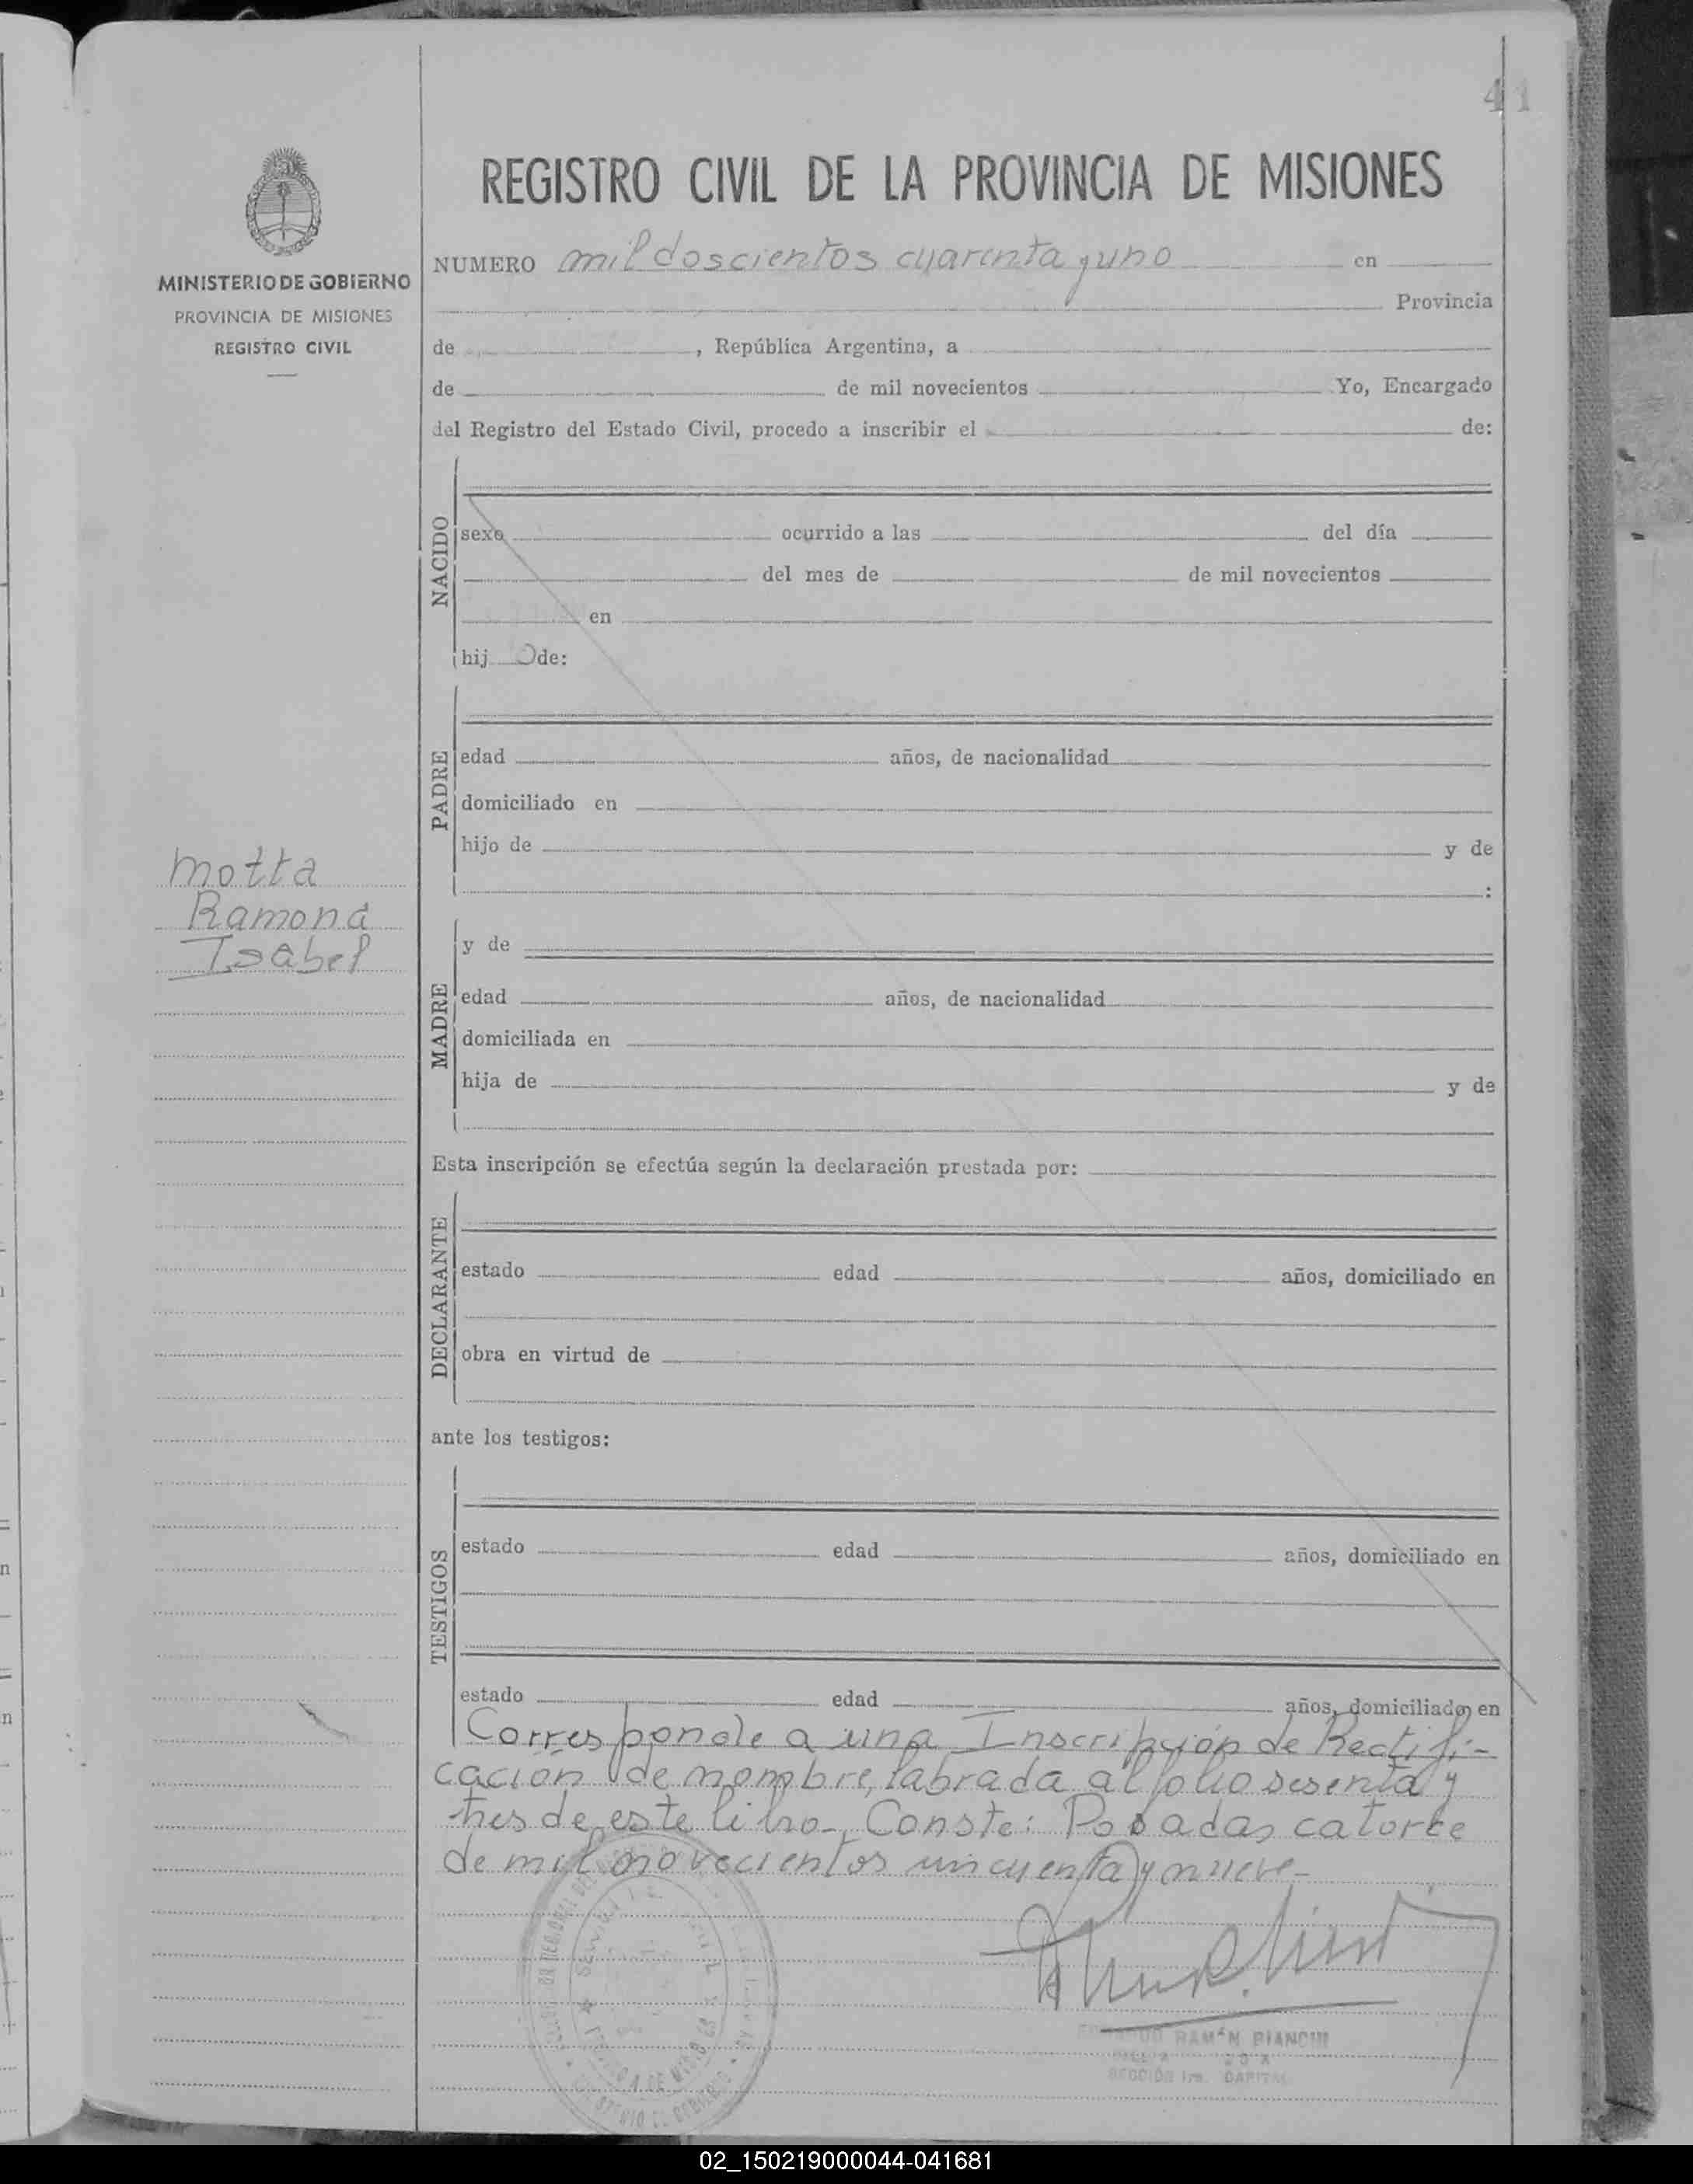 41
REGISTRO CIVIL DE LA PROVINCIA DE MISIONES
MINISTERIO DE GOBIERNO
PROVINCIA DE MISIONES
REGISTRO CIVIL
NUMERO mil doscientos cuarenta y uno en
Provincia
de , República Argentina, a
de de mil novecientos Yo, Encargado
del Registro del Estado Civil, procedo a inscribir el de:
NACIDO
sexo ocurrido a las del día
del mes de de mil novecientos
en
hij o de:
PADRE
edad años, de nacionalidad
domiciliado en
hijo de y de
:
motta
Ramona
Isabel
MADRE
y de
edad años, de nacionalidad
domiciliada en
hija de y de
Esta inscripción se efectúa según la declaración prestada por:
DECLARANTE
estado edad años, domiciliado en
obra en virtud de
ante los testigos:
TESTIGOS
estado edad años, domiciliado en
estado edad años, domiciliado en
Corresponde a una Inscripción de Rectifi-
cación de nombre, labrada al folio sesenta y
tres de este libro. Conste: Posadas catorce
de mil novecientos cincuenta y nueve-
RAMÓN BIANCHI
SECCIÓN 1ra. CAPITAL
02_150219000044-041681